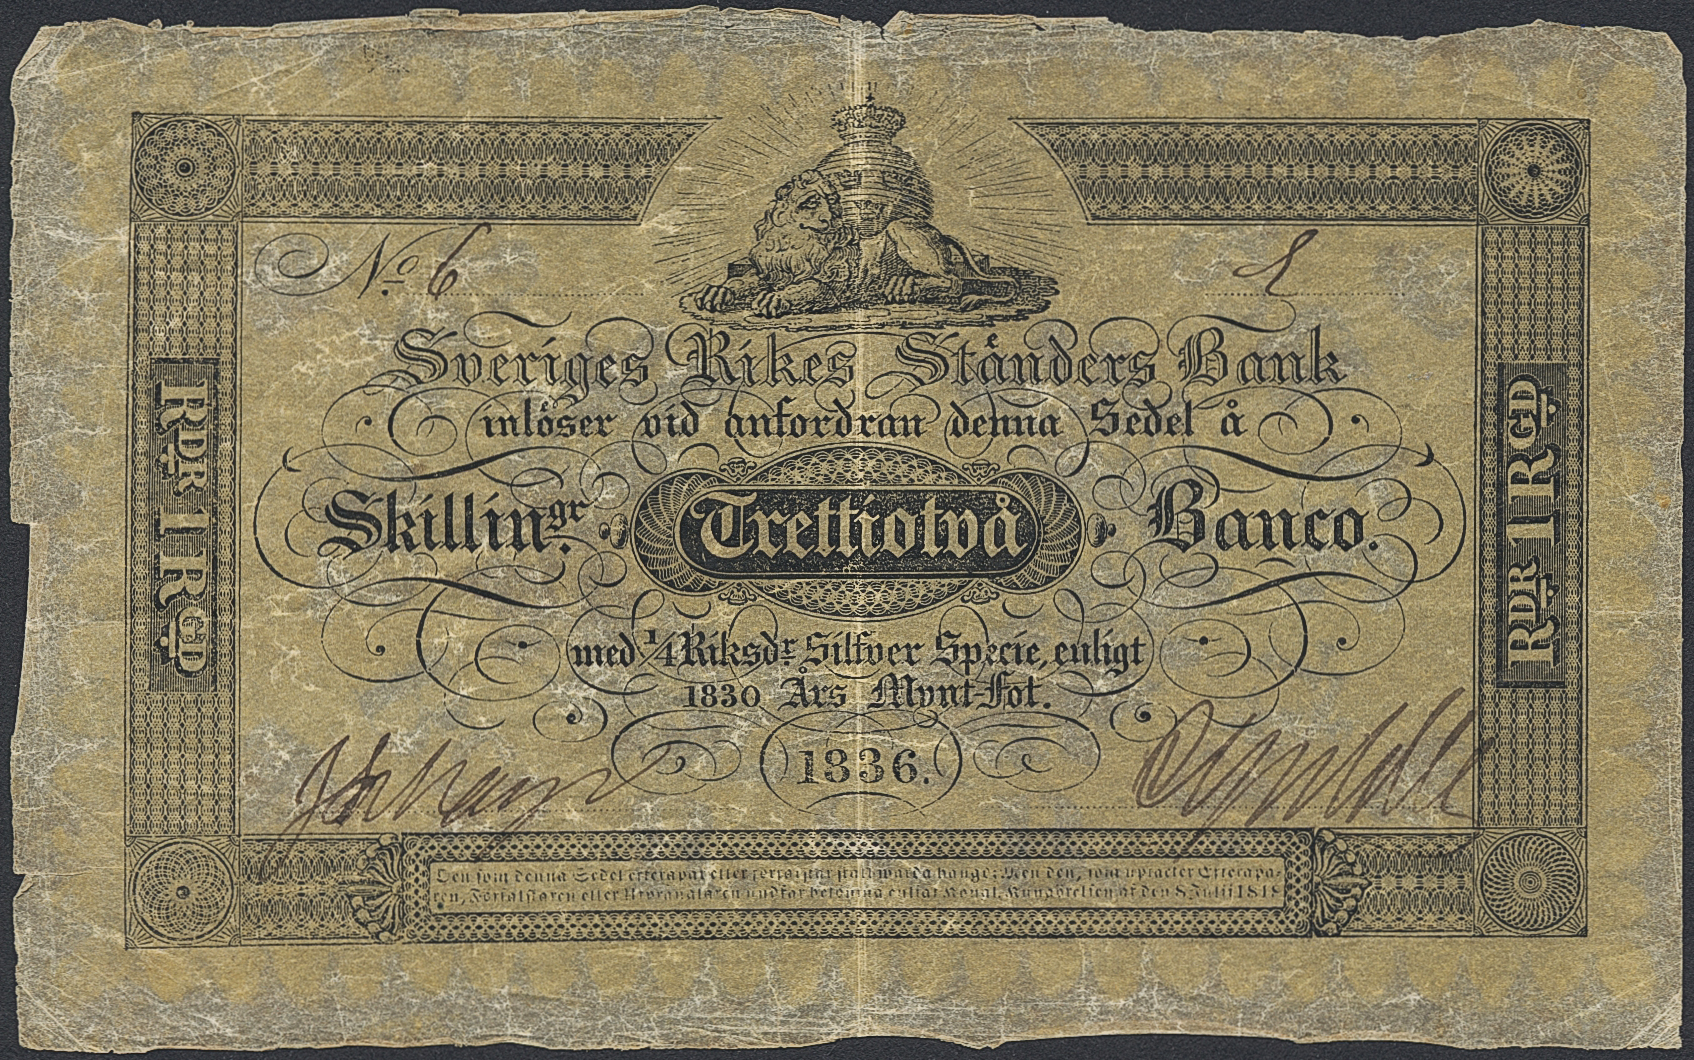 No. 6
Sveriges Rikes Ständers Bank
inlöser vid anfordran denna Sedel å
Skillin:gr Trettiotvå Banco.
med 1/4 Riksdr Silfver Specie, enligt
1830 Års Mynt-Fot.
1836.
RDR 1 RGD
RDR 1 RGD
Den som denna Sedel efterapar eller förfalskar skall warda hängd; Men den, som uptäcker Efterapa-
ren, Förfalskaren eller Utprånglaren undfår belöning enligt Kongl. Kungörelsen af den 8 Julii 1818